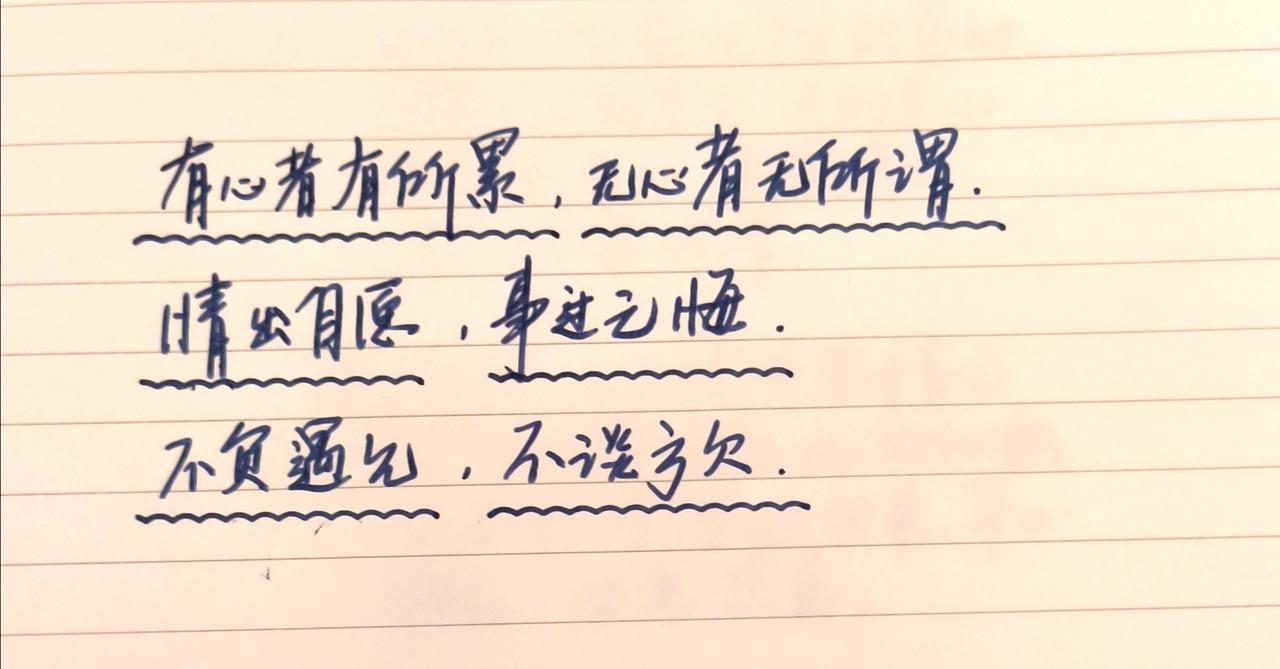 有心者有所累,无心者无所谓.
情出自愿,事过无悔.
不负遇见,不谈亏欠.